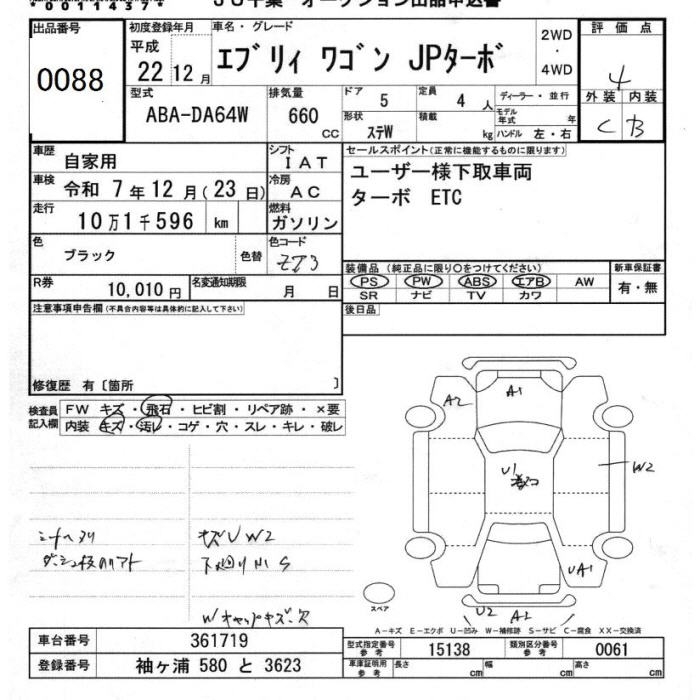 00114374
JU千葉 オークション出品申込書
出品番号
0088
初度登録年月
平成
22 12 月
車名・グレード
エブリィ ワゴン JPターボ
2WD
・
4WD
評価点
4
外装 内装
C B
型式
ABA-DA64W
排気量
660
CC
ドア 5
定員 4 人
ディーラー・並行
モデル年式 年
形状 ステW
積載 kg
ハンドル 左・右
車歴 自家用
シフト IAT
セールスポイント(正常に機能するものに限ります)
車検 令和 7 年 12 月(23 日)
冷房 AC
ユーザー様下取車両
走行 10万1千596 km
燃料 ガソリン
ターボ ETC
色 ブラック 色替
色コード ZJ3
装備品(純正品に限り〇をつけてください)
新車保証書
R券 10,010 円
名変通知期限 月 日
PS PW ABS エアB AW
有・無
SR ナビ TV カワ
注意事項申告欄(不具合内容等は具体的に記入して下さい)
後日品
修復歴 有〔箇所 〕
検査員記入欄
FW キズ・飛石・ヒビ割・リペア跡・×要
内装 キズ・汚レ・コゲ・穴・スレ・キレ・破レ
A2
A1
U1
W2
UA1
U2 A2
シートヘタリ
キズUW2
下廻りサビS
Wキャップキズ・欠
スペア
A-キズ E-エクボ U-凹み W-補修跡 S-サビ C-腐食 XX-交換済
車台番号 361719
型式指定番号 参考 15138
類別区分番号 参考 0061
登録番号 袖ヶ浦 580 と 3623
車庫証明用 参考 長さ cm 幅 cm 高さ cm